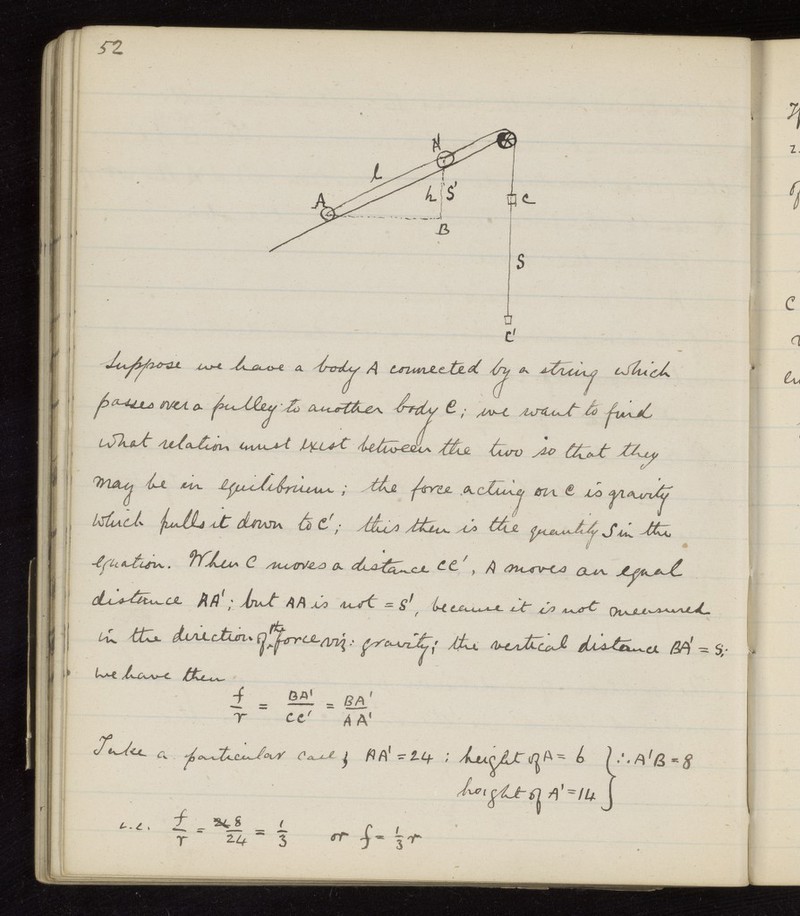 52
A'
l
A
h S'
C
B
S
C'
Suppose we have a body A connected by a string which
passes over a pulley to another body C; we want to find
what relation must exist between the two so that they
may be in equilibrium; the force acting on C is gravity
which pulls it down to C'; this then is the quantity S in the
equation. When C moves a distance CC', A moves an equal
distance AA'; but AA is not = S', because it is not measured
in the direction of the force, viz: gravity; the vertical distance BA' = S;
we have then
f/r = BA'/CC' = BA'/AA'
Take a particular case; AA' = 24 : height of A = 6 } ∴ A'B = 8
height of A' = 14
i.e. f/r = 8/24 = 1/3 or f = 1/3 r
C